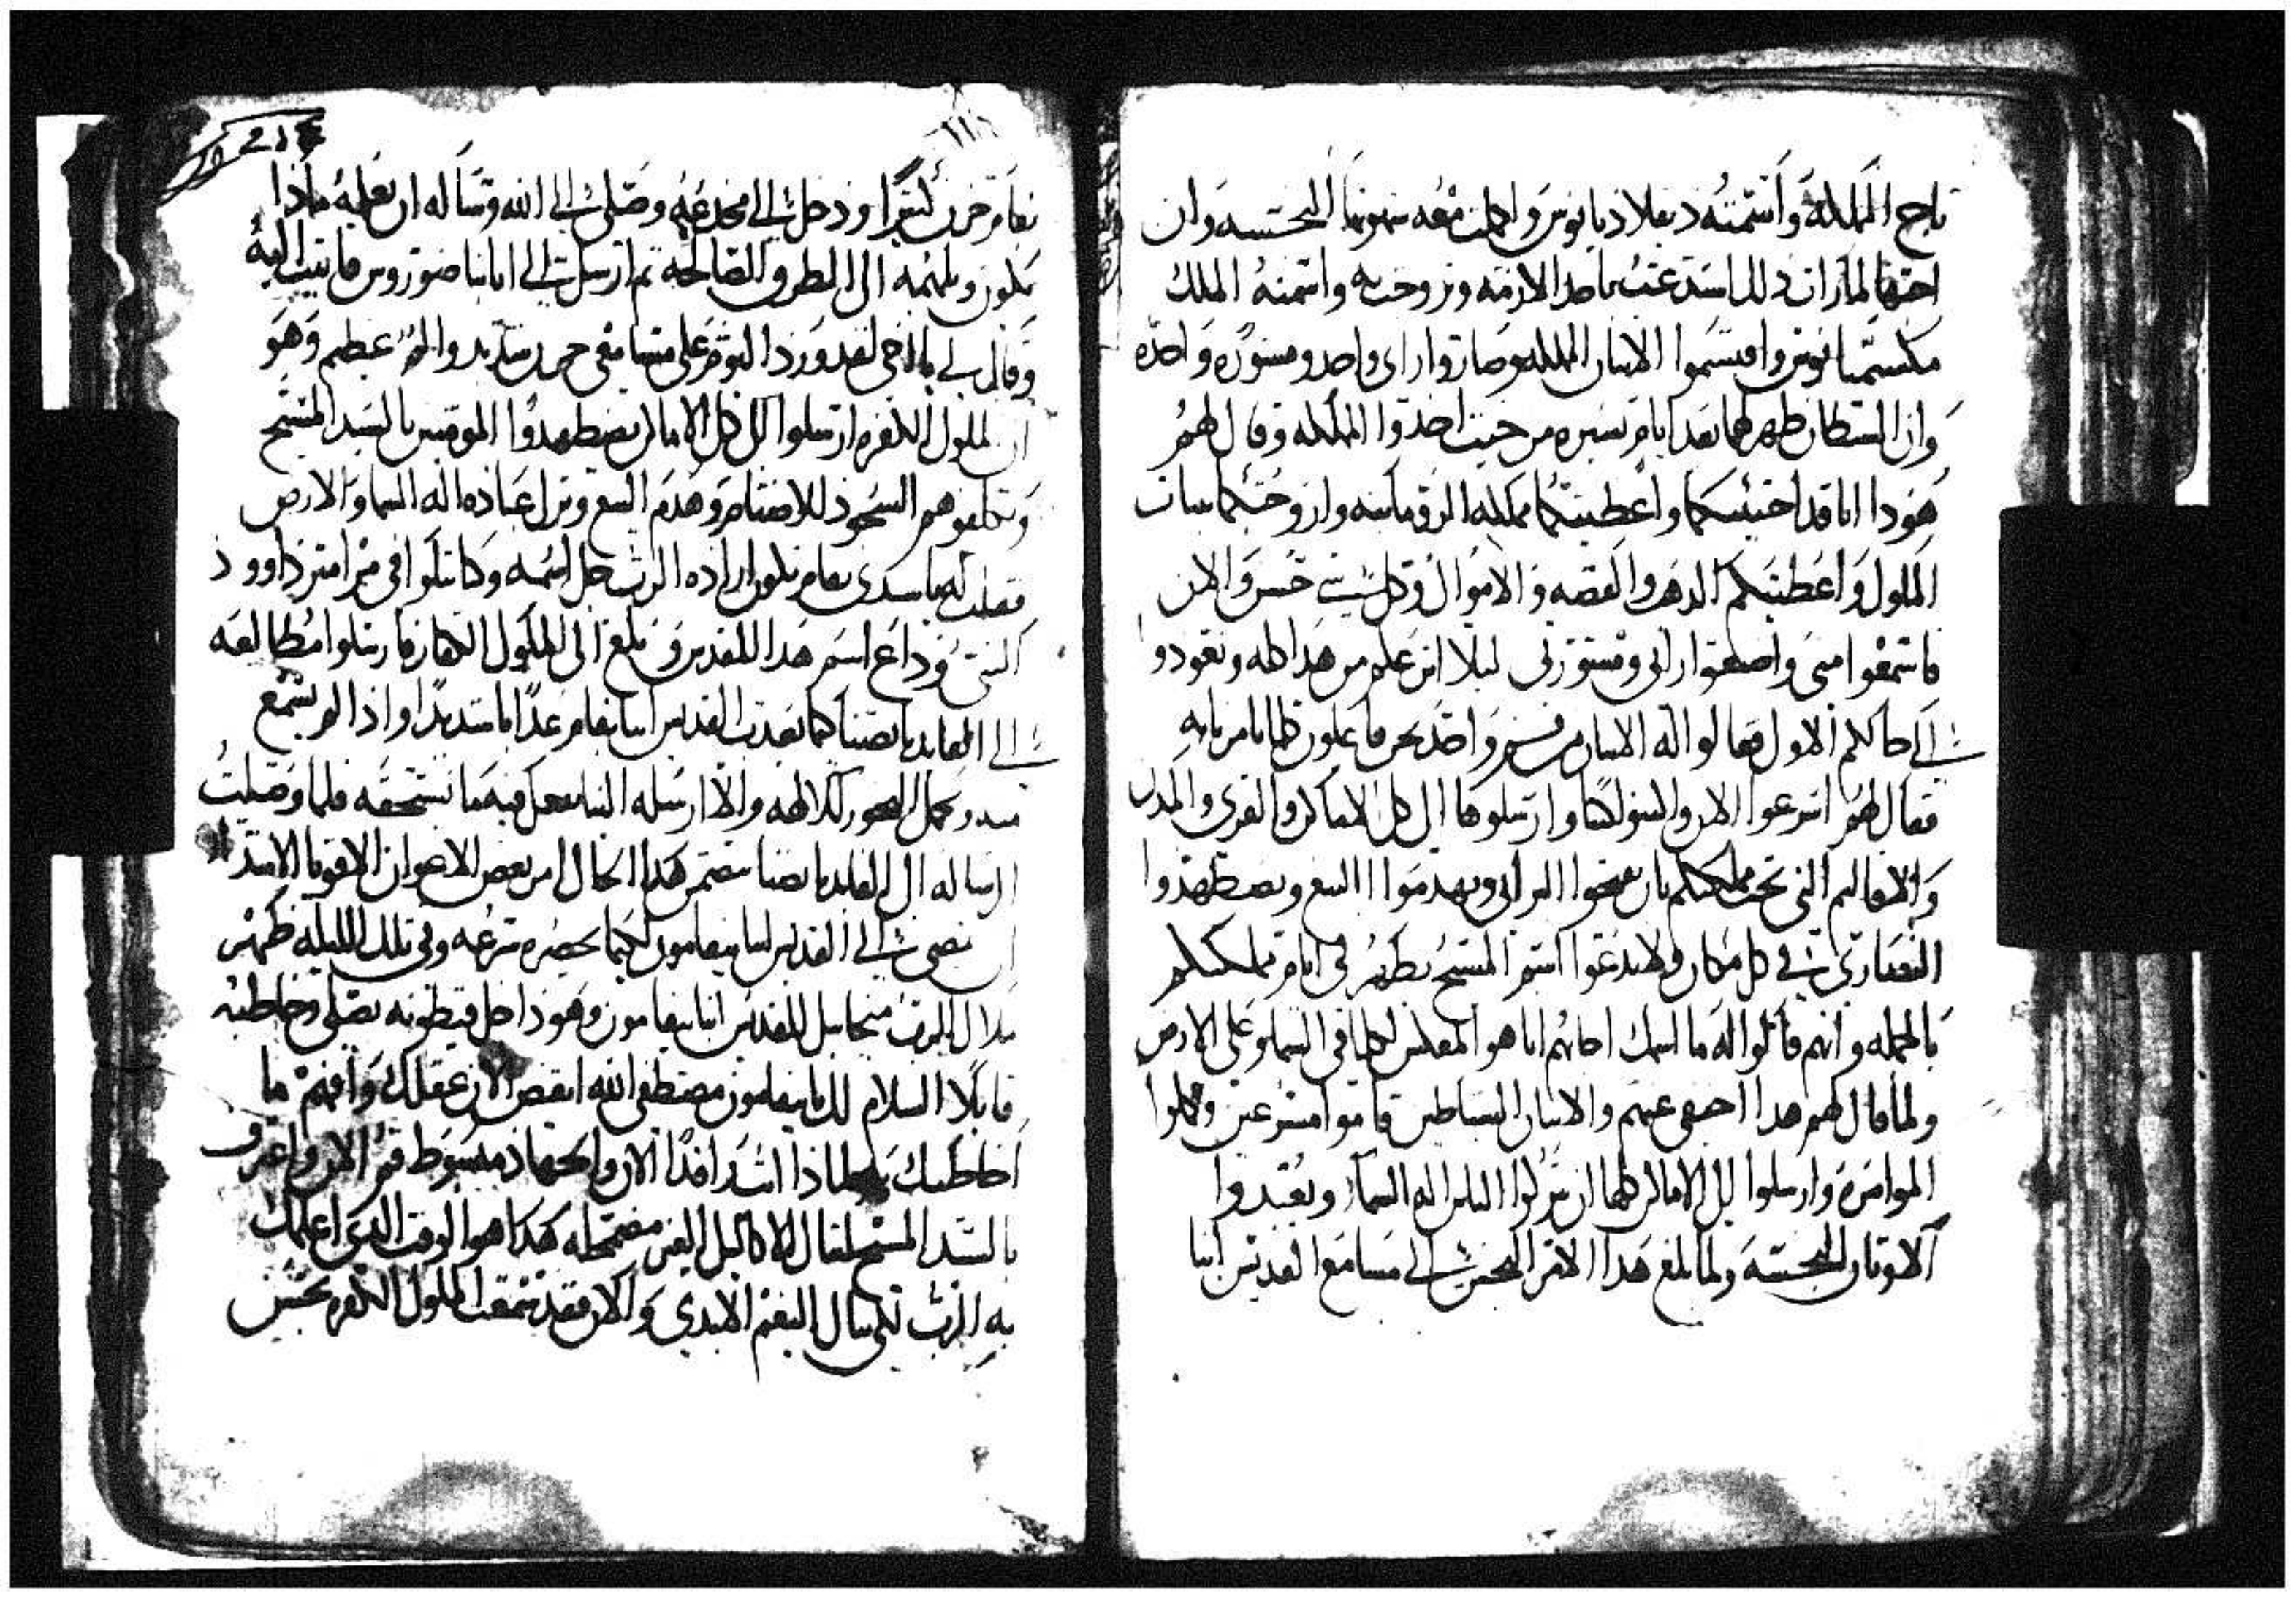 تاج المملكه واسمته دیقلادیانوس واكملت معه شهوتها النجسه وان
اختها لما رات ذلك استدعت باحد الازمه وتزوجت به واسمته الملك
مكسيميانوس واقتسموا الاتنان المملكه وصاروا راى واحد ومشوره واحده
وان الشيطان ظهر لهما بعد ايام يسيره من حيث اخدوا المملكه وقال لهم
هودا انا قد احببتكما واعطيتكما مملكه الرومانيه وازوجتكما بنات
الملوك واعطيتكم الدهب والفضه والاموال وكل شي حسن والان
فاسمعوا منى واصنعوا راى ومشورتى ليلا انزعكم من هدا كله وتعودوا
الى حالكم الاول فقالوا له الاتنان من فم واحد نحن فاعلون كلما تامرنا به
فقال لهم اسرعوا الان واكتبوا كتبا وارسلوها الى كل الاماكن والقرى والمدن
والاقاليم التى تحت مملكتكم بان يفتحوا البرابى ويهدموا البيع ويضطهدوا
النصارى فى كل مكان ولا تدعوا اسم المسيح يظهر فى ايام مملكتكم
بالجمله وانهم قالوا له ما اسمك اجابهم انا هو المعكس لكلما فى السما وعلى الارض
ولما قال لهم هدا اختفى عنهم والاتنان الشياطين قاموا مسرعين وكملوا
الموامره وارسلوا الى الاماكن كلها ان يتركوا الناس اله السما ويعبدوا
الاوتان النجسه ولما بلغ هدا الامر النجس الى مسامع القديس انبا
بفام حزن كثيرا ودخل الى مخدعه وصلى الى الله وساله ان يعلمه ماذا
يكون ويلهمه الى الطرق الصالحه ثم ارسل الى انا تاضوروس فاتيت اليه
وقال لى يا اخى لقد ورد اليوم على مسامعى حزن شديد والم عظيم وهو
ان الملوك الكفره ارسلوا الى كل الاماكن يضطهدوا المومنين بالسيد المسيح
ويكلفوهم السجود للاصنام وهدم البيع وترك عبادة اله السما والارض
فقلت له يا سيدى بفام تكون ارادة الرب جل اسمه وكنا نتلوا فى مزامير داوود
النبى وذاع اسم هدا القديس وبلغ الى الملوك الكفار فارسلوا مطالعه
الى القايد بانصنا كما تعدب القديس انبا بفام عدابا شديدا واذا لم يسمع
منه ويحمل البخور للالهه والا ارسله الينا نفعل فيه ما يستحقه فلما وصلت
الرساله الى القايد بانصنا بتضمن هدا الحال امر بعض الاعوان الاقويا الاشدا
ان نمضى الى القديس انبا بيفامون لكيما يحضره بسرعه وفى تلك الليله ظهر
ملاك الرب ميخاييل للقديس انبا بيفامون وهو داخل قيطونه يصلى وخاطبه
قايلا السلام لك يا بيفامون مصطفى الله ايقض الان عقلك وافهم ما
اخاطبك به لماذا انت راقدا الان والجهاد مبسوط قم الان واعترف
بالسيد المسيح لتنال الاكاليل الغير مضمحله هكدا هوا الوقت الدى اعلمك
به الرب لكى تنال النعيم الابدى والان فقد سمعت الملوك الكفره بحسن